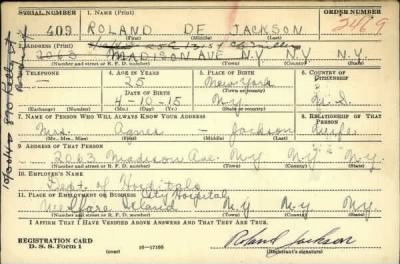 SERIAL NUMBER 1. NAME (Print) ORDER NUMBER
409 ROLAND DE JACKSON 2469
(First) (Middle) (Last)
2. ADDRESS (Print)
2063 MADISON AVE. N.Y. N.Y. N.Y.
(Number and street or R. F. D. number) (Town) (County) (State)
3. TELEPHONE 4. AGE IN YEARS 5. PLACE OF BIRTH 6. COUNTRY OF CITIZENSHIP
— 25 New York
DATE OF BIRTH (Town or county)
4-10-15 N.Y. U.S.
(Exchange) (Number) (Mo.) (Day) (Yr.) (State or country)
7. NAME OF PERSON WHO WILL ALWAYS KNOW YOUR ADDRESS 8. RELATIONSHIP OF THAT PERSON
Mrs. Agnes — Jackson Wife
(Mr., Mrs., Miss) (First) (Middle) (Last)
9. ADDRESS OF THAT PERSON
2063 Madison Ave. N.Y. N.Y. N.Y.
(Number and street or R. F. D. number) (Town) (County) (State)
10. EMPLOYER'S NAME
Dept. of Hospitals
11. PLACE OF EMPLOYMENT OR BUSINESS City Hospital
Welfare Island N.Y. N.Y. N.Y.
(Number and street or R. F. D. number) (Town) (County) (State)
I AFFIRM THAT I HAVE VERIFIED ABOVE ANSWERS AND THAT THEY ARE TRUE.
REGISTRATION CARD
D. S. S. Form 1 (over) 16—17105 Roland Jackson
(Registrant's signature)